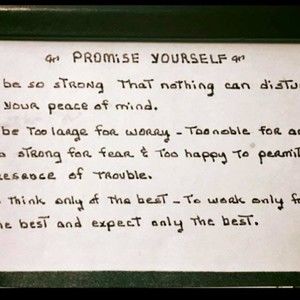 PROMISE YOURSELF
be so strong That nothing can distu
your peace of mind.
be Too large for worry - Too noble for an
strong for fear & Too happy to permit
resence of Trouble.
Think only of The best - To work only f
he best and expect only the best.